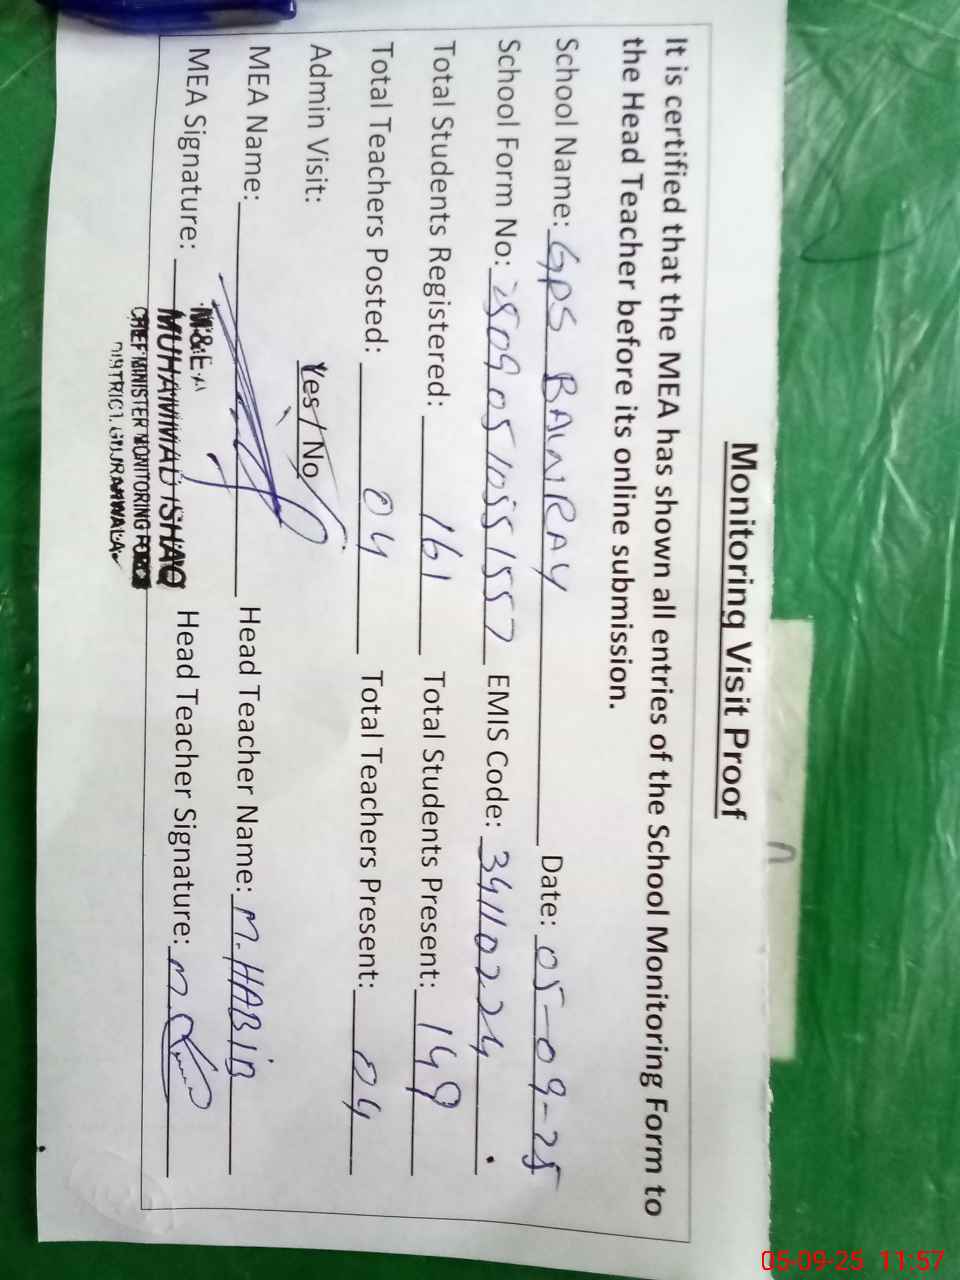 Monitoring Visit Proof
It is certified that the MEA has shown all entries of the School Monitoring Form to
the Head Teacher before its online submission.
School Name: GPS BAINRAY Date: 05-09-25
School Form No: 25090510551557 EMIS Code: 34110224
Total Students Registered: 161 Total Students Present: 149
Total Teachers Posted: 04 Total Teachers Present: 04
Admin Visit: Yes / No
MEA Name: Head Teacher Name: M. HABIB
MEA Signature: Head Teacher Signature: M.
M&EA
MUHAMMAD ISHAQ
CHIEF MINISTER MONITORING FORCE
DISTRICT, GUJRANWALA.
05-09-25 11:57